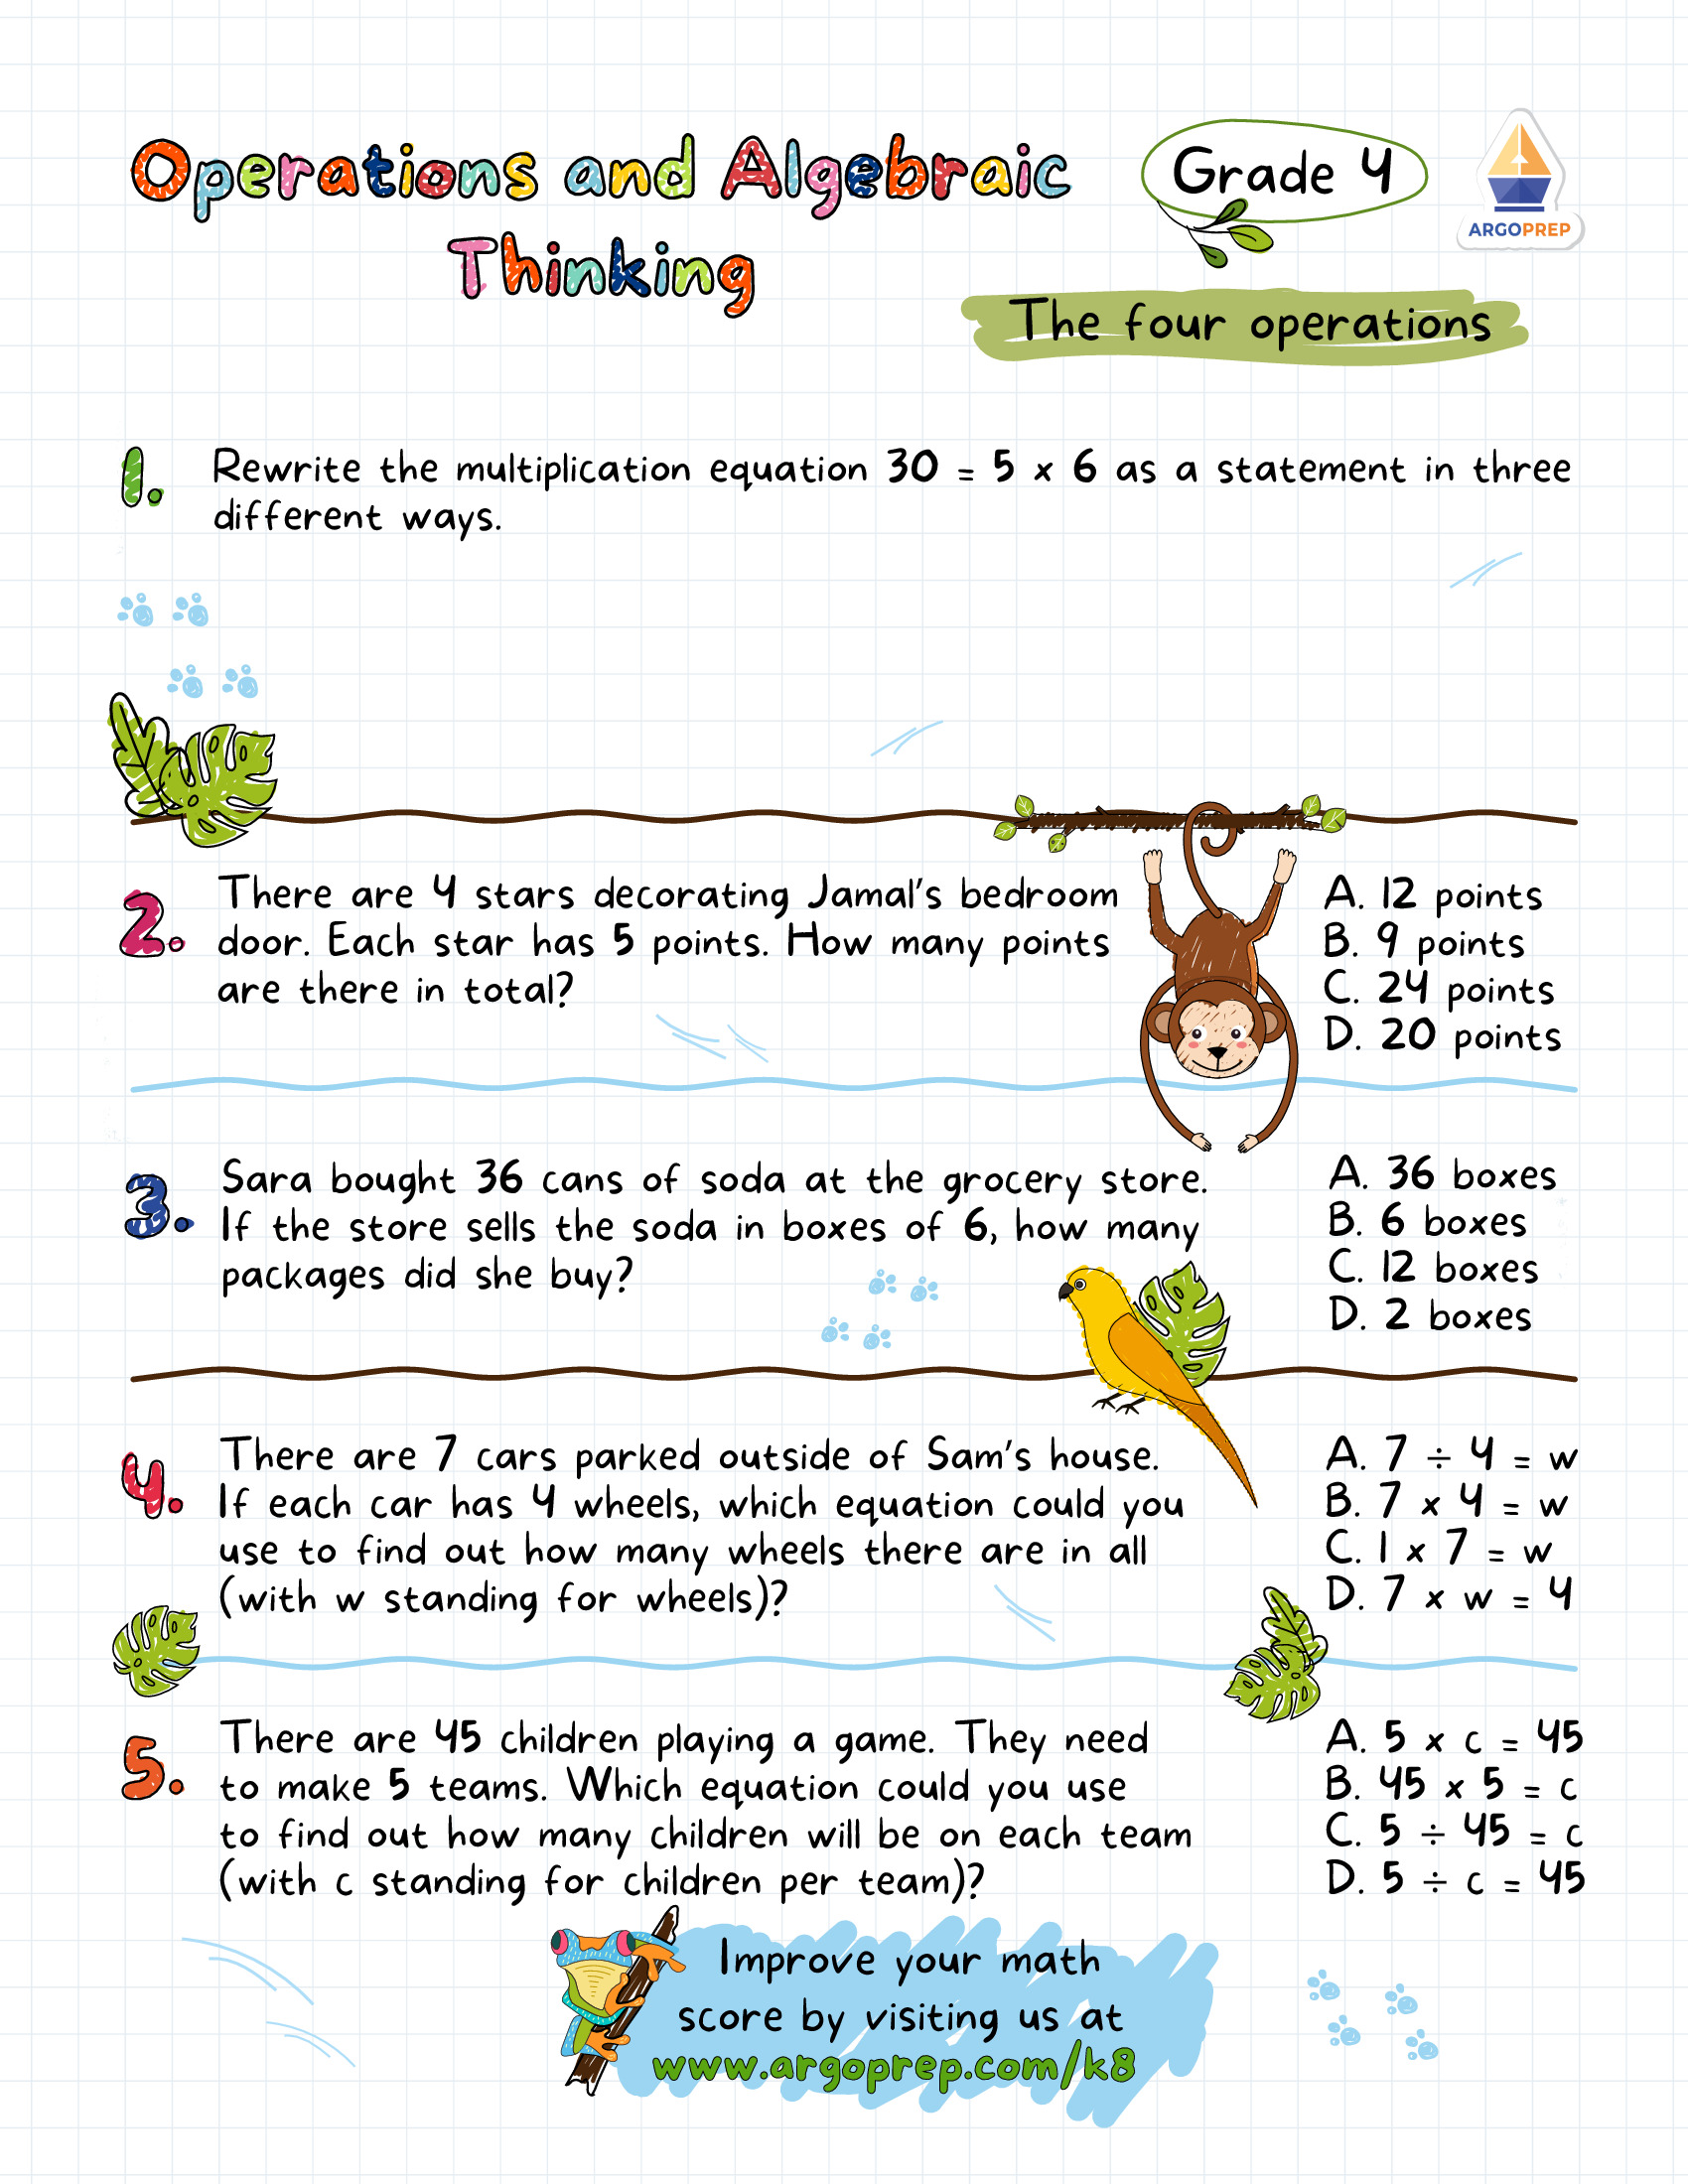 Operations and Algebraic
Thinking
Grade 4
ARGOPREP
The four operations
1. Rewrite the multiplication equation 30 = 5 x 6 as a statement in three
different ways.
2. There are 4 stars decorating Jamal's bedroom
door. Each star has 5 points. How many points
are there in total?
A. 12 points
B. 9 points
C. 24 points
D. 20 points
3. Sara bought 36 cans of soda at the grocery store.
If the store sells the soda in boxes of 6, how many
packages did she buy?
A. 36 boxes
B. 6 boxes
C. 12 boxes
D. 2 boxes
4. There are 7 cars parked outside of Sam's house.
If each car has 4 wheels, which equation could you
use to find out how many wheels there are in all
(with w standing for wheels)?
A. 7 ÷ 4 = w
B. 7 x 4 = w
C. 1 x 7 = w
D. 7 x w = 4
5. There are 45 children playing a game. They need
to make 5 teams. Which equation could you use
to find out how many children will be on each team
(with c standing for children per team)?
A. 5 x c = 45
B. 45 x 5 = c
C. 5 ÷ 45 = c
D. 5 ÷ c = 45
Improve your math
score by visiting us at
www.argoprep.com/k8